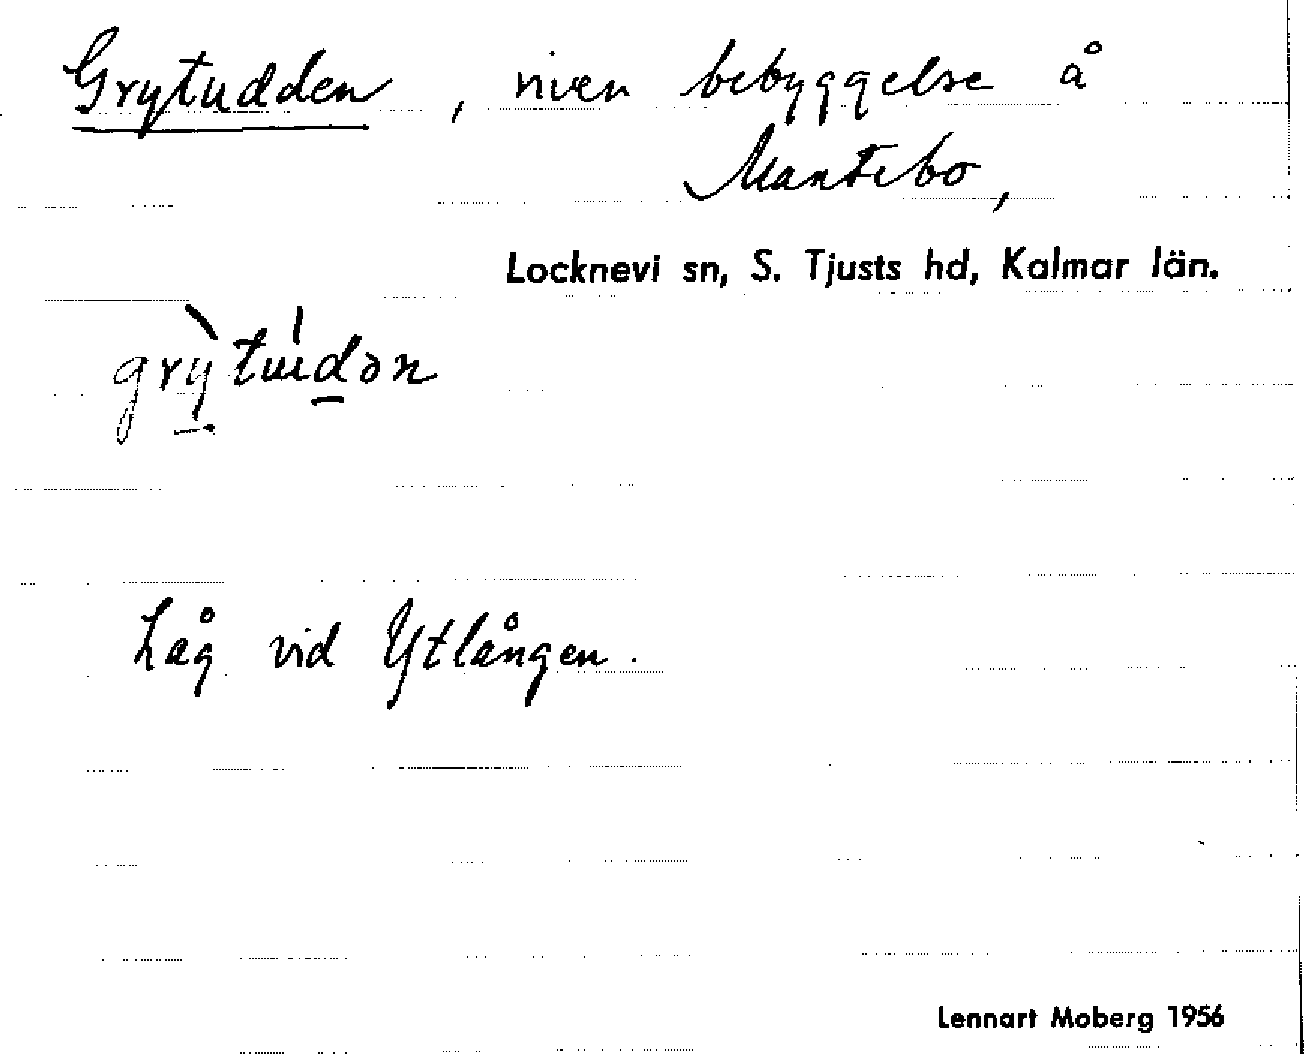 Grytudden, riven bebyggelse å
Mantebo,
Locknevi sn, S. Tjusts hd, Kalmar län.
grỳtúdən
Låg vid Ytlången.
Lennart Moberg 1956